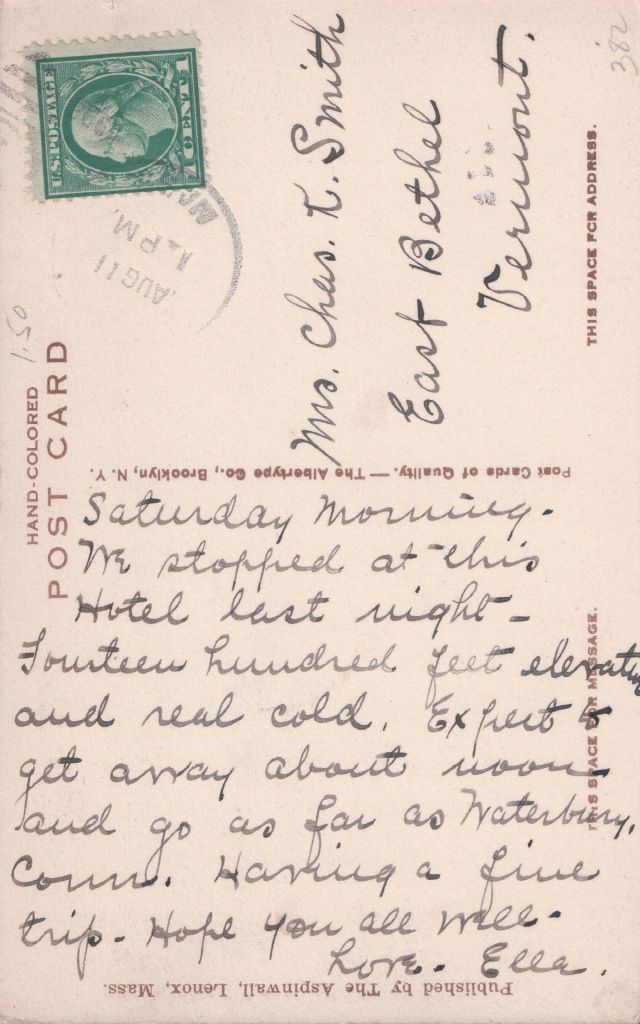 382
U.S. POSTAGE
1 CENT 1
AUG 11
1 PM
1.50
HAND-COLORED
POST CARD
Mrs. Chas. K. Smith
East Bethel
Vermont.
THIS SPACE FOR ADDRESS.
Post Cards of Quality. — The Albertype Co., Brooklyn, N. Y.
Saturday Morning.
We stopped at this
Hotel last night -
Fourteen hundred feet elevation
and real cold. Expect to
get away about noon
and go as far as Waterbury,
Conn. Having a fine
trip. Hope you all well.
Love. Ella.
THIS SPACE FOR MESSAGE.
Published by The Aspinwall, Lenox, Mass.